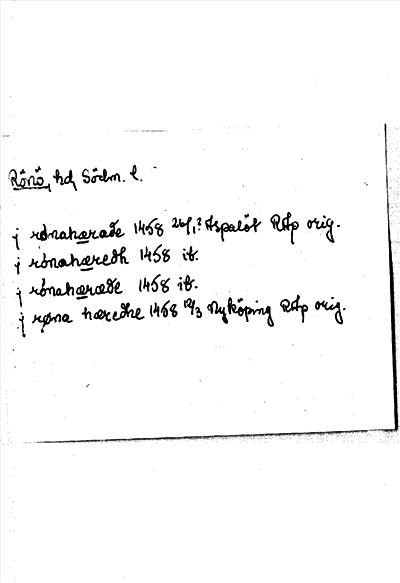 Rönö, hd, Södm. l.
j rønahærade 1458 26/1? Aspalöt RAp orig.
j rönahæredh 1458 ib.
j rönahæræde 1458 ib.
j røna hæredhe 1458 12/3 Nyköping RAp orig.